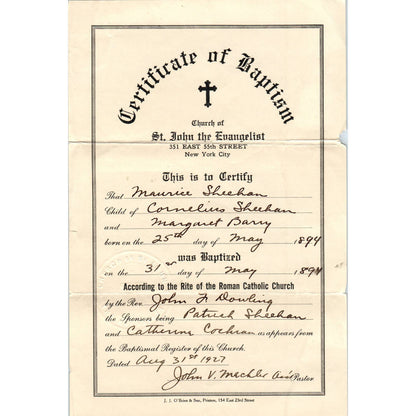 Certificate of Baptism
Church of
St. John the Evangelist
351 EAST 55th STREET
New York City
This is to Certify
That Maurice Sheehan
Child of Cornelius Sheehan
and Margaret Barry
born on the 25th day of May 1894
was Baptized
on the 31st day of May 1894
According to the Rite of the Roman Catholic Church
by the Rev. John F Dowling
the Sponsors being Patrick Sheehan
and Catherine Cochran as appears from
the Baptismal Register of this Church.
Dated Aug 31st 1927
John V. Mechler Ass't Pastor
J. J. O'Brien & Son, Printers, 154 East 23rd Street